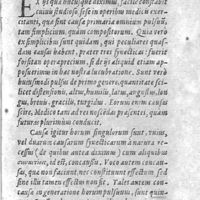 EX ijs quæ hucusque diximus, facile constabit
cuiuis studioso sese in operibus medicis exer-
citanti, quæ sint causa primaria omnium pulsuum,
tam simplicium, quàm compositorum. Quia verò
ex simplicibus sunt quidam, qui peculiares quas-
dam causas habent, præter tres synecticas: fuerit
fortasse operæprecium, si de ijs aliquid etiam ap-
posuerimus in hac nostra lucubratione. Sunt verò
huiusmodi pulsus de primo genere, quantitate scili-
cet distensionis, altus, humilis, latus, angustus, lon-
gus, brevis, gracilis, turgidus. Eorum enim causas
scire, Medico tam ad res noscendas præsentes, quam
futuras plurimum conducit.
Causæ igitur horum singulorum sunt, unius,
vel duarum causarum synecticarum à natura
recessus (de quibus antea diximus) cum aliquibus
id est, concausis. Voco autem concau-
sas, quæ non faciunt, nec constituunt effectum sed
sine illis tamen effectus non sit. Tales autem con-
causæ in generatione horum pulsuum, sunt, quin-